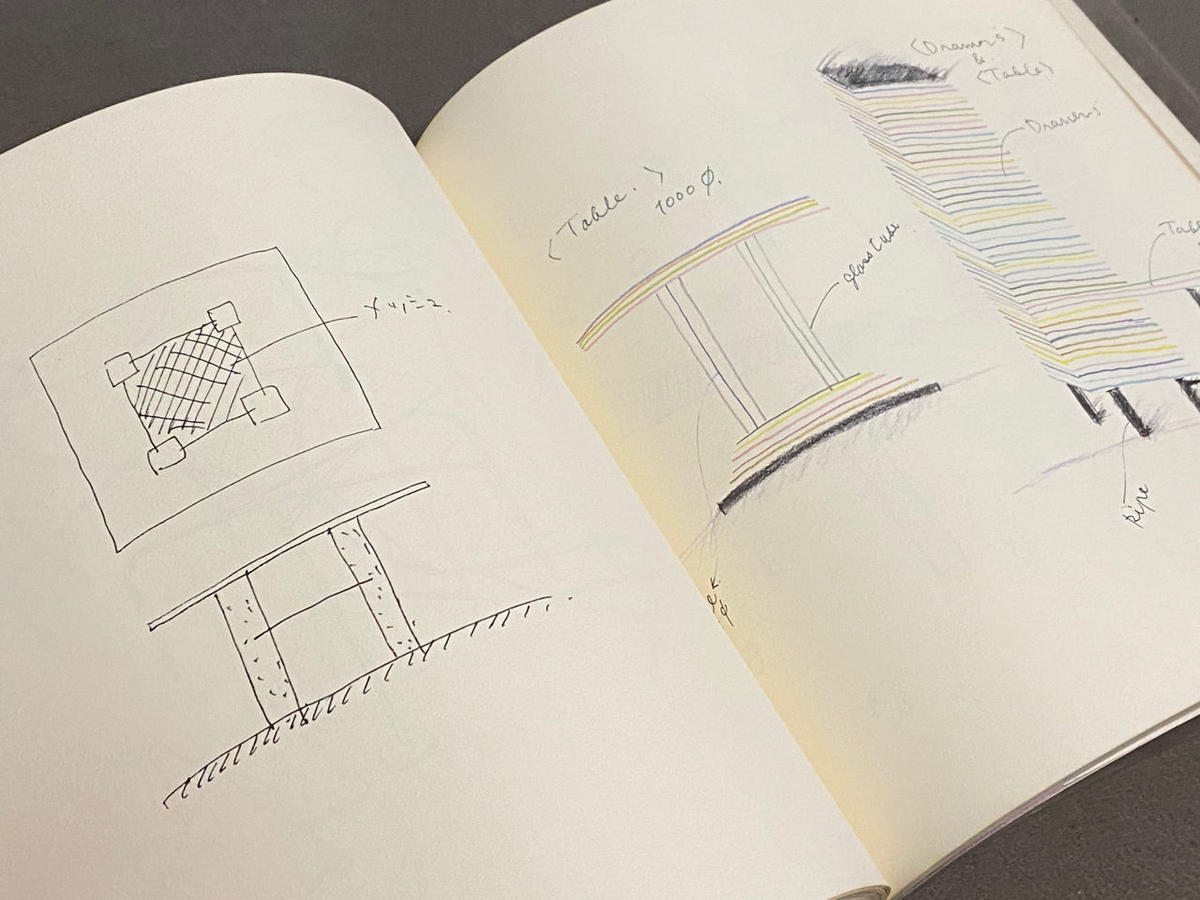 メッシュ
<Table.>
1000φ.
glass tube
<Drawers>
&
<Table>
Drawers
pipe